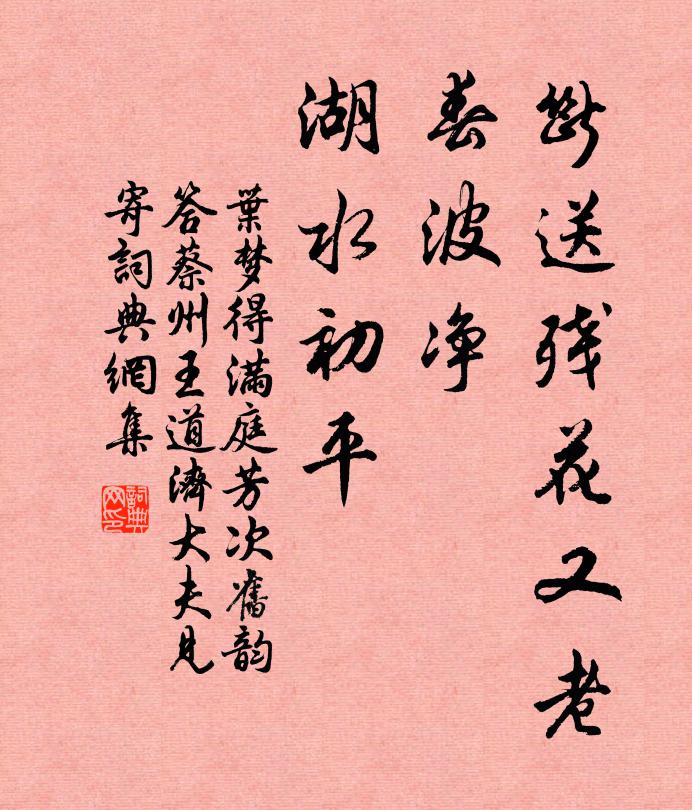 断送残花又老
春波净
湖水初平
葉梦得满庭芳次舊韵
答蔡州王道濟大夫見
寄詞典網集
詞典网印